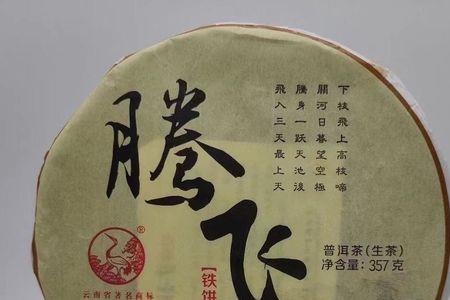 下枝飛上高枝啼
關河日暮望空極
騰身一跃天池後
飛入三天最上天
腾飞
[铁饼
普洱茶(生茶)
净含量: 357克
®
云南省著名商标